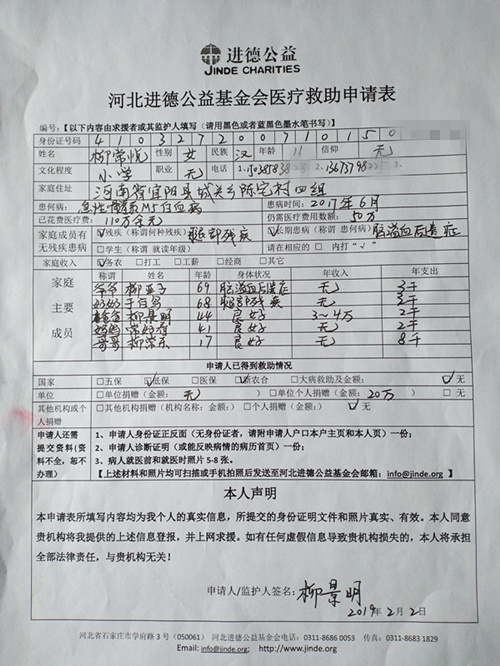 进德公益
JINDE CHARITIES
河北进德公益基金会医疗救助申请表
编号:【以下内容由求援者或其监护人填写(请用黑色或者蓝黑色墨水笔书写)】
身份证号码 410327200710150
姓名 柳常悦 性别 女 民族 汉 年龄 11 信仰 无
文化程度 小学 职业 无 电话
家庭住址 河南省宜阳县城关乡陈宅村四组
患何病: 急性 M5白血病 患病时间: 2017年6月
已花费医疗费: 110万余元 仍需医疗费用数额: 50万
家庭成员有无残疾患病 ☑残疾(称谓何种残疾) 腿部残疾 ☑长期患病(称谓 患何病) 脑溢血后遗症
□学生(称谓 就读年级) 请在相应的 □ 内打"√"
家庭收入 ☑务农 □打工 □薪资 □经商 □其它
家庭主要成员 称谓 姓名 身体状况 年收入 年支出
爷爷 柳亚子 69 脑溢血后遗症 无 3千
奶奶 于自写 68 腿部残疾 无 2千
爸爸 柳景明 44 良好 3~4万 2千
妈妈 常好存 41 良好 无 2千
哥哥 柳常乐 17 良好 无 8千
申请人已得到救助情况
国家 □五保 ☑低保 □医保 ☑新农合 □大病救助及金额: ☑无
单位 □单位捐赠(金额: 无 ) □单位个人捐赠(金额: 20万 ) □无
其他机构或个人捐赠 □其他机构捐赠(机构名称: 金额:) □个人捐赠(金额: ) ☑无
申请人还需提交资料(资料不全,恕不办理)
1、申请人身份证正反面(无身份证者,请附申请人户口本户主页和本人页)一份;
2、申请人诊断证明(或能反映病情的病历首页)一份;
3、病人就医前和就医时照片 5-8 张。
【上述材料和照片均可扫描或手机拍照后发送至河北进德公益基金会邮箱: info@jinde.org】
本人声明
本申请表所填写内容均为我个人的真实信息,所提交的身份证明文件和照片真实、有效。本人同意
贵机构将我提供的上述信息登报,并上网求援。如有任何虚假信息导致贵机构损失的,本人将承担
全部法律责任,与贵机构无关!
申请人/监护人签名: 柳景明
2019年2月2日
河北省石家庄市学府路 3 号(050061) 河北进德公益基金会电话: 0311-8686 0053 传真: 0311-8683 1829
Email: info@jinde.org; http://www.jinde.org